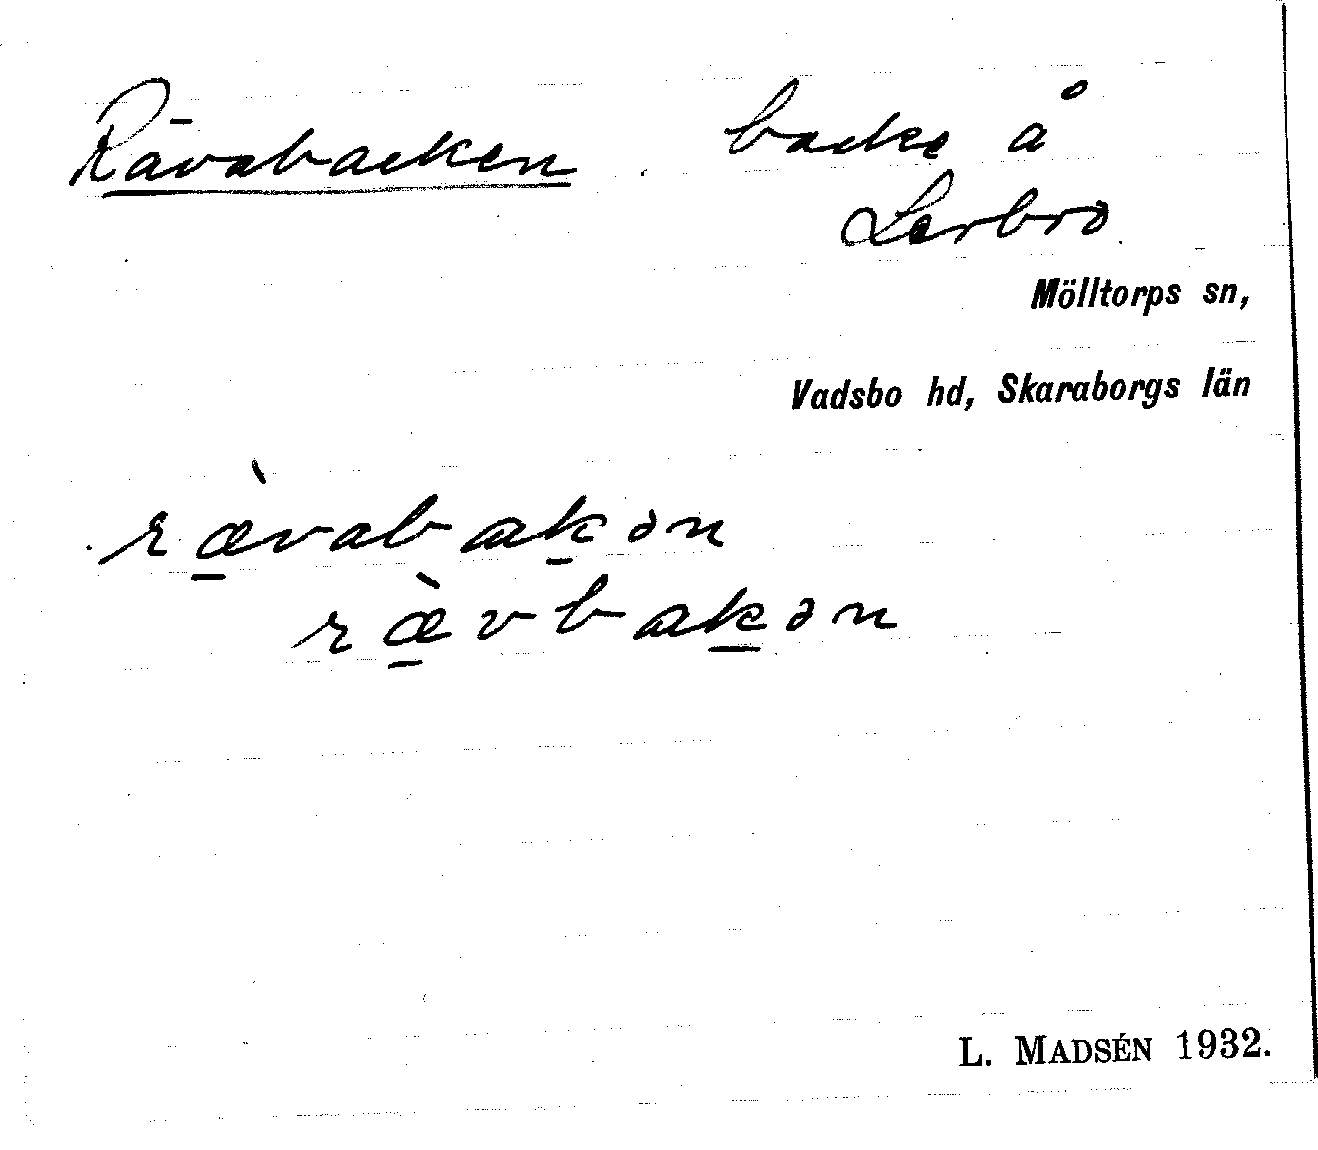 Rävabacken backe å
Lerbro
Mölltorps sn,
Vadsbo hd, Skaraborgs län
ræ̀vabakən
ræ̀vbakən
L. MADSÉN 1932.